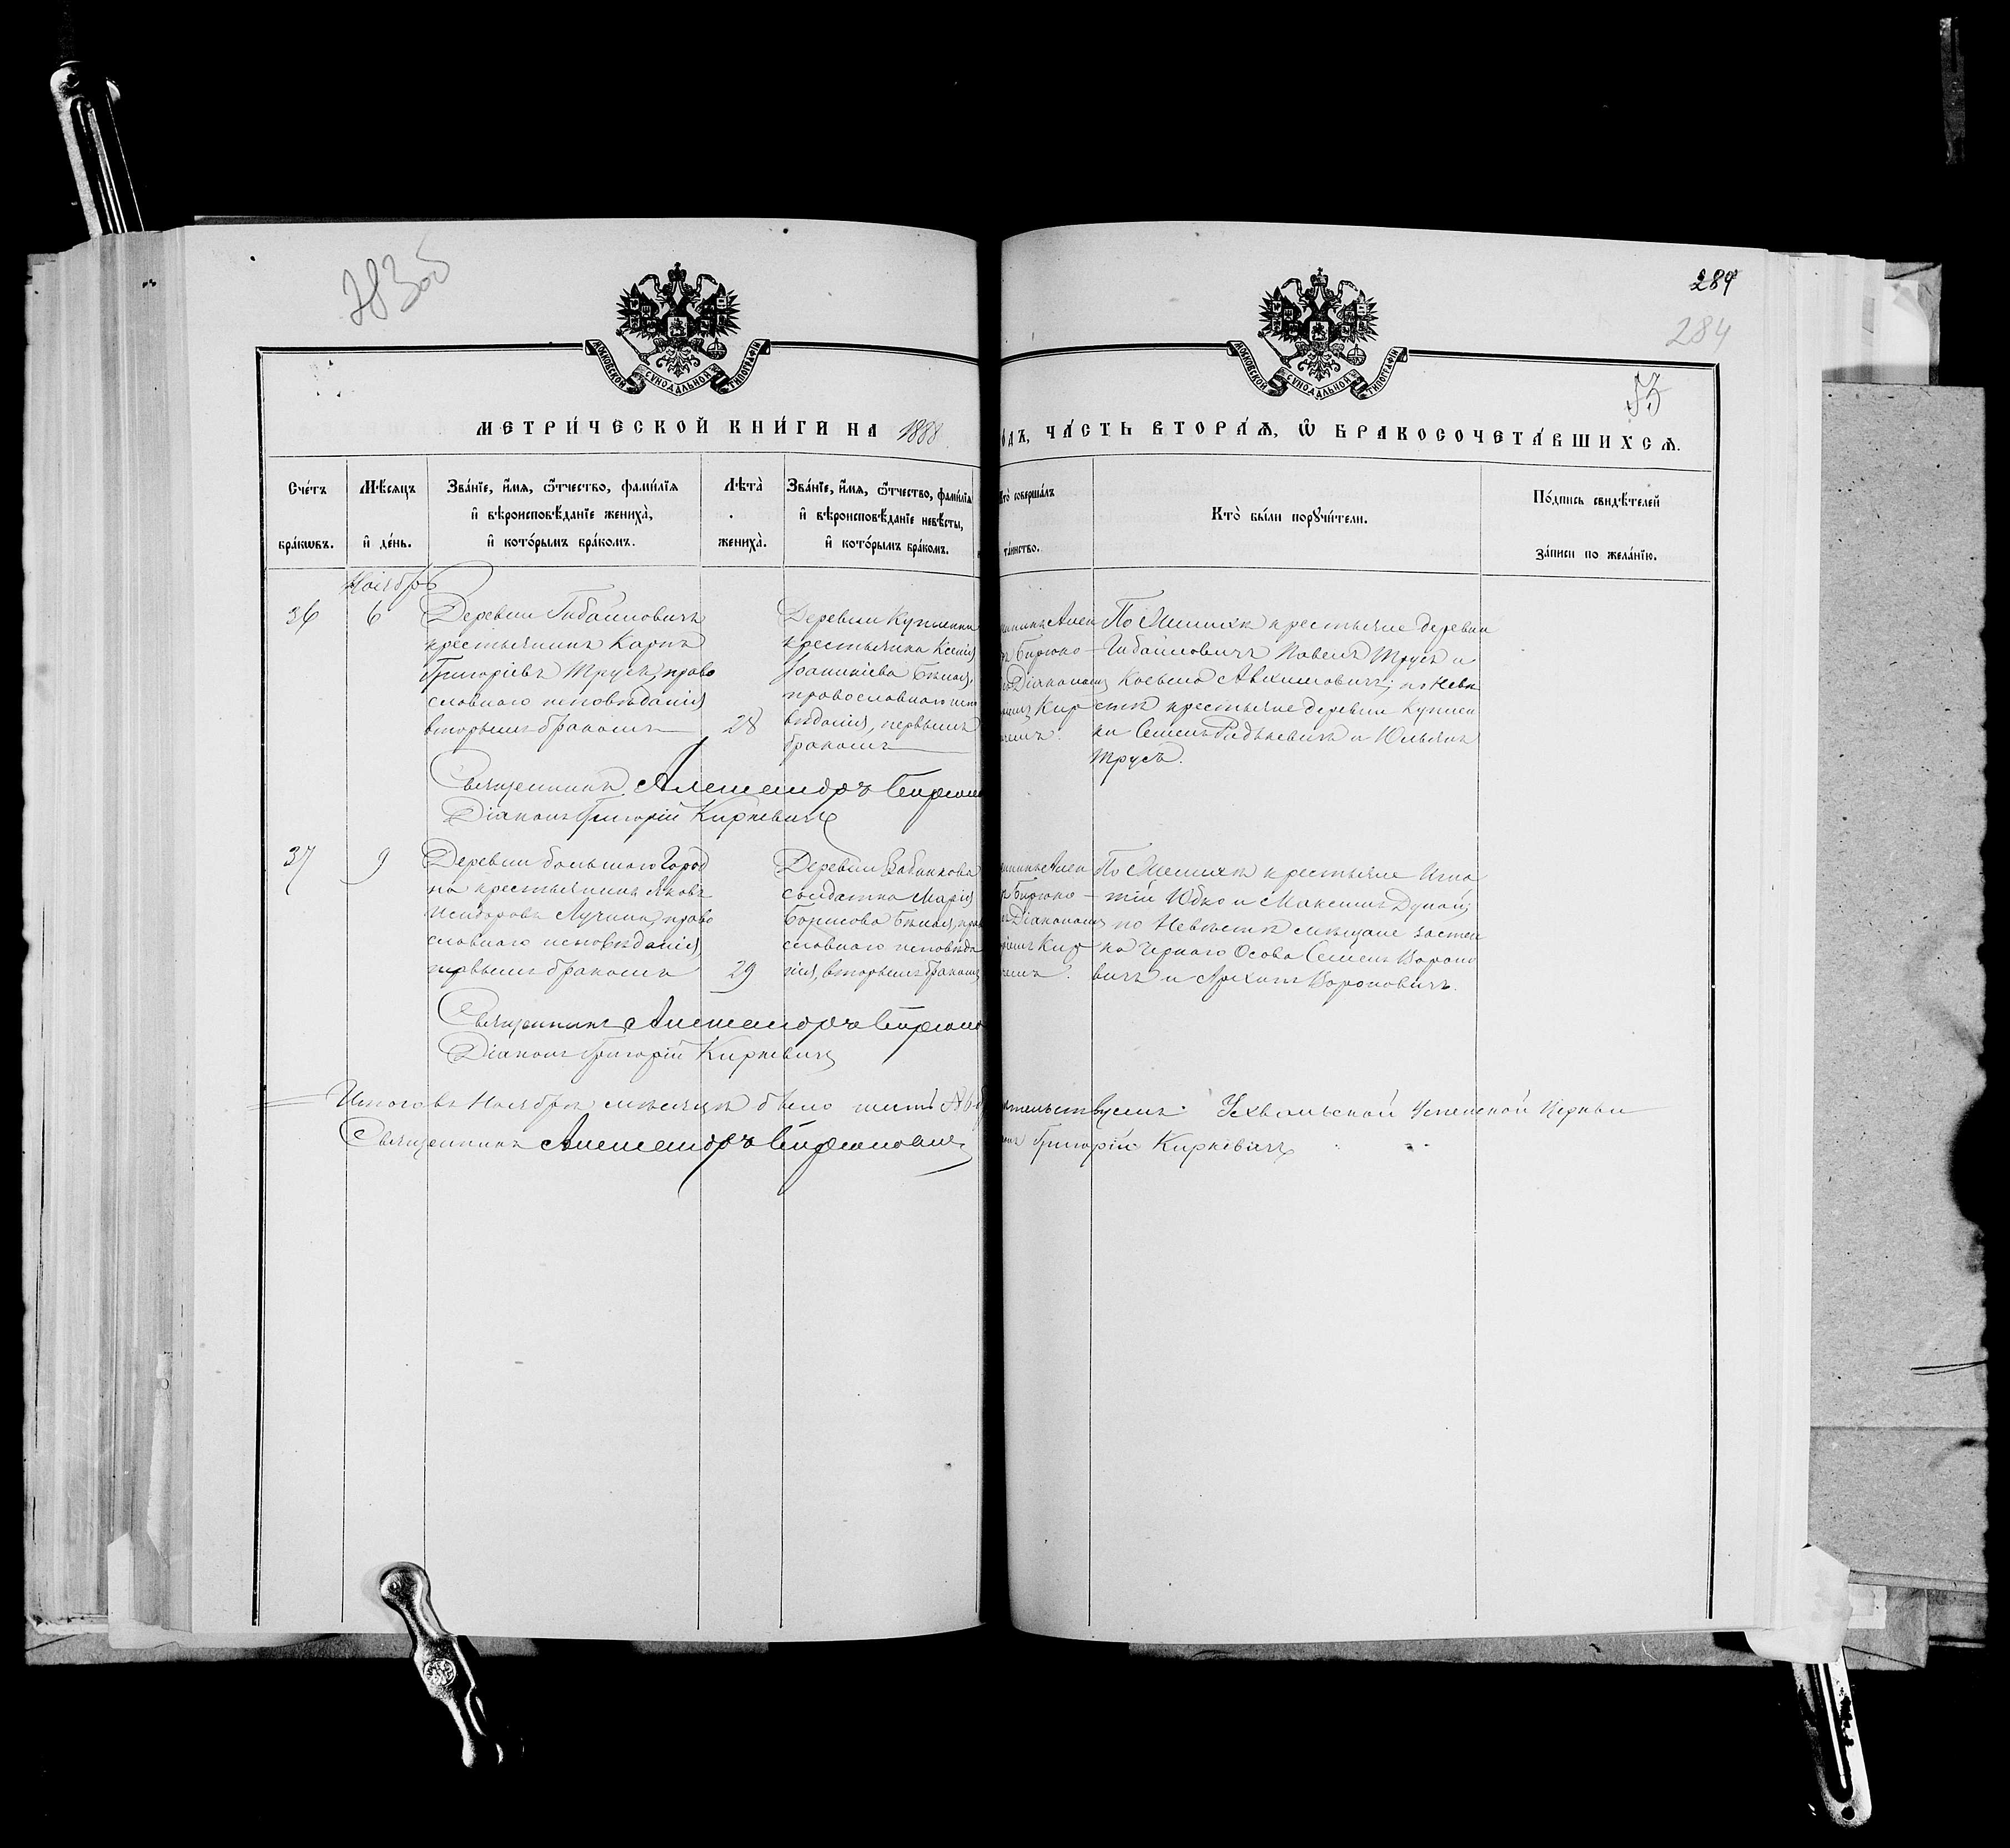 283об
284
284
МОСКОВСКОЙ СѴНОДАЛЬНОЙ ТИПОГРАФІИ
МОСКОВСКОЙ СѴНОДАЛЬНОЙ ТИПОГРАФІИ
МЕТРИ́ЧЕСКОЙ КНИ́ГИ НА 1888
ОДЪ, ЧА́СТЬ ВТОРА́Ѧ, Ѿ БРАКОСОЧЕТА́ВШИХСѦ.
Сче́тъ бра́кѡвъ.
Мѣ́сѧцъ и҆ де́нь.
Зва́нїе, и҆́мѧ, ѻ҆́тчество, фами́лїѧ
и҆ вѣроисповѣ́данїе жениха̀,
и҆ кото́рымъ бра́комъ.
Лѣ́та жениха̀.
Зва́нїе, и҆́мѧ, ѻ҆́тчество, фами́лїѧ
и҆ вѣроисповѣ́данїе невѣ́сты,
и҆ кото́рымъ бра́комъ.
Кто̀ соверша́лъ
та́инство.
Кто̀ бы́ли порꙋчи́тели.
По́дпись свидѣ́телей
за́писи по жела́нїю.
Ноябрь
36
6
Деревни Гибайловичъ
крестьянинъ Карпъ
Григоріевъ Трусъ, право
славнаго исповѣданія
вторымъ бракомъ
28
Деревни Купленки
крестьянка Ксенія
Іоанникіева Бѣлая,
православнаго испо
вѣданія, первымъ
бракомъ
По Женихѣ крестьяне деревни
Гибайловичъ Павелъ Трусъ и
по Невѣ
стѣ крестьяне деревни Куплен
ки Семенъ Радкевичъ и Юльянъ
Трусъ.
Священникъ Александръ Бирюко
Діаконъ Григорій Киркевичъ
37
9
Деревни Большаго Город
на крестьянинъ Яковъ
Исидоровъ Лучина, право
славнаго исповѣданія,
первымъ бракомъ
29
Деревни
солдатка Марія
Борисова Бѣлая, прав
славнаго исповѣда
нія, вторымъ бракомъ
По Женихѣ крестьяне Игна
тій Юдко и Максимъ Дунай;
по Невѣстѣ мѣщане застен
ка Чернаго Осова Семенъ Вороно
вичъ и Архипъ Вороновичъ.
Священникъ Александръ Бирюко
Діаконъ Григорій Киркевичъ
Итого въ Ноябрѣ мѣсяцѣ было
тельствуемъ. Ухвальской Успенской Церкви
Священникъ Александръ Бирюкович
Григорій Киркевичъ